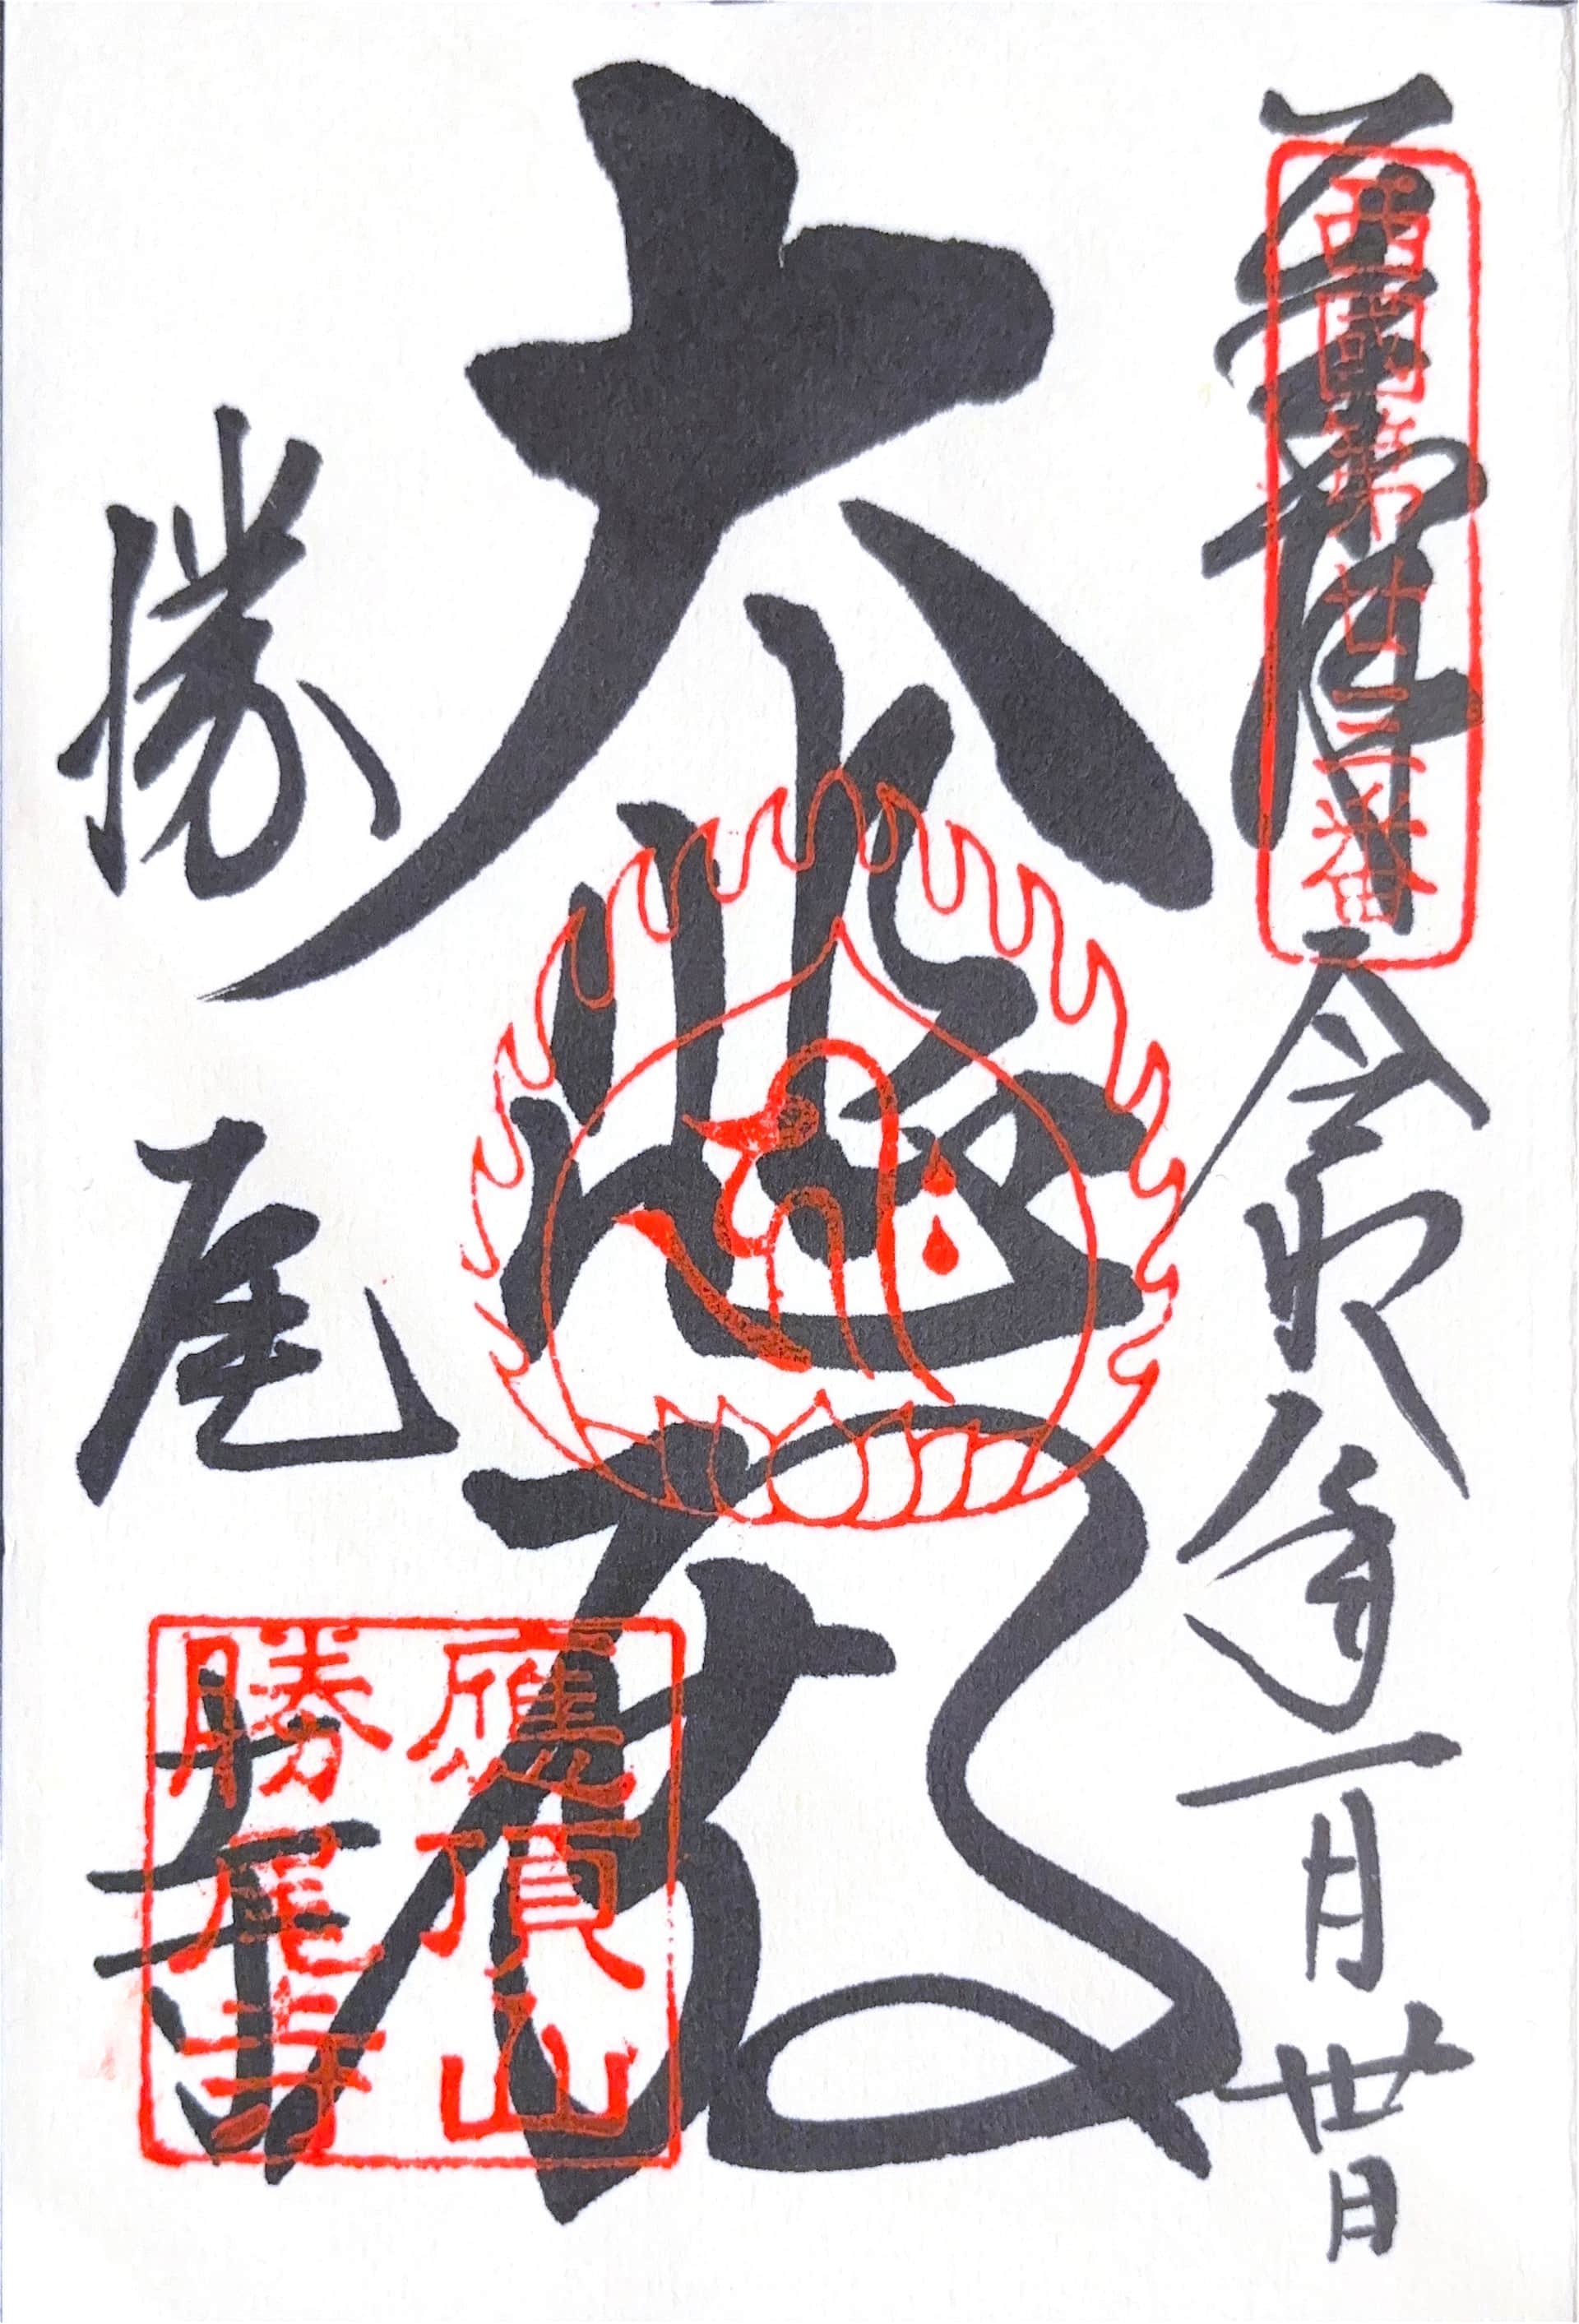 西國第廿三番
令和年一月卅日
大悲殿
勝尾寺
應頂山
勝尾寺